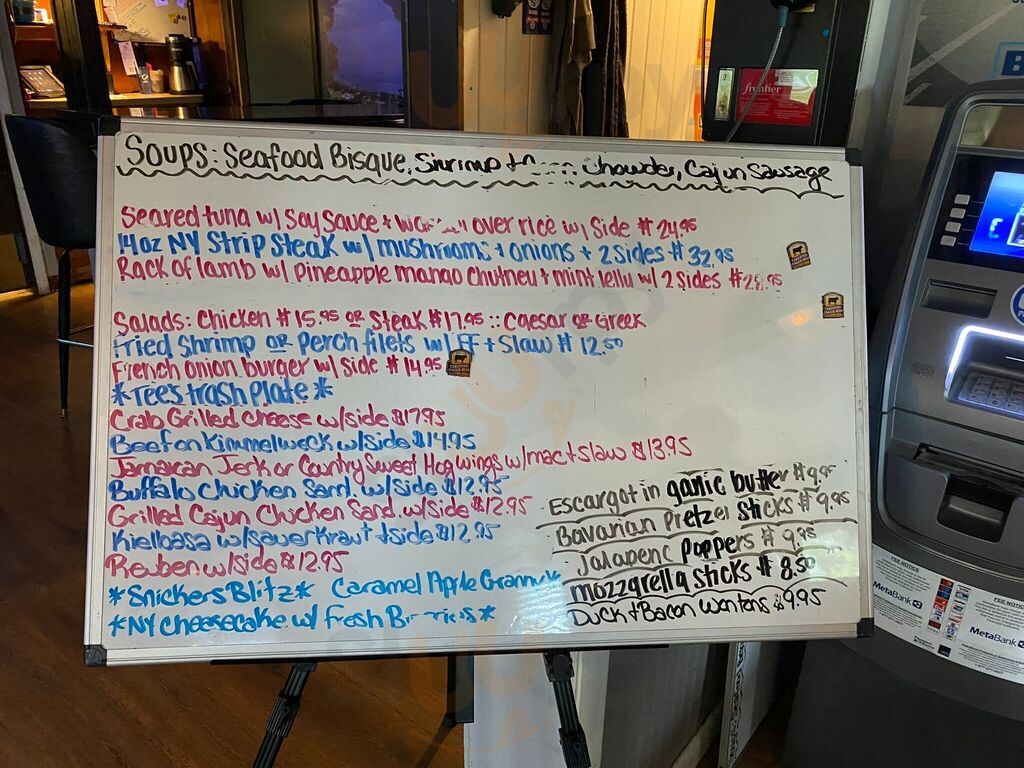 Soups: Seafood Bisque, Shrimp + Chowder, Cajun Sausage
Seared tuna w/ Soy Sauce + over rice w/ Side $24.95
14oz NY Strip Steak w/ mushrooms + onions + 2 Sides $32.95
Rack of lamb w/ pineapple mango Chutney + mint Jelly w/ 2 Sides $28.95
Salads: Chicken $15.95 or Steak $17.95 :: Caesar or Greek
Fried Shrimp or Perch filets w/ FF + Slaw $12.50
French onion burger w/ Side $14.95
*Tee's trash Plate*
Crab Grilled Cheese w/side $17.95
Beef on Kimmelweck w/side $14.95
Jamacan Jerk or Country Sweet Hog wings w/mac + slaw $13.95
Buffalo Chicken Sand. w/side $12.95
Grilled Cajun Chicken Sand. w/side $12.95
Kielbasa w/sauerkraut + side $12.95
Reuben w/side $12.95
*Snickers Blitz* Caramel Apple Granny*
*NY Cheesecake w/ Fresh Berries*
Escargot in garlic butter $9.95
Bavarian Pretzel Sticks $9.95
Jalapeno Poppers $9.95
mozzarella sticks $8.50
Duck + Bacon Wontons $9.95
frontier
FEE NOTICE
MetaBank
FEE NOTICE
MetaBank